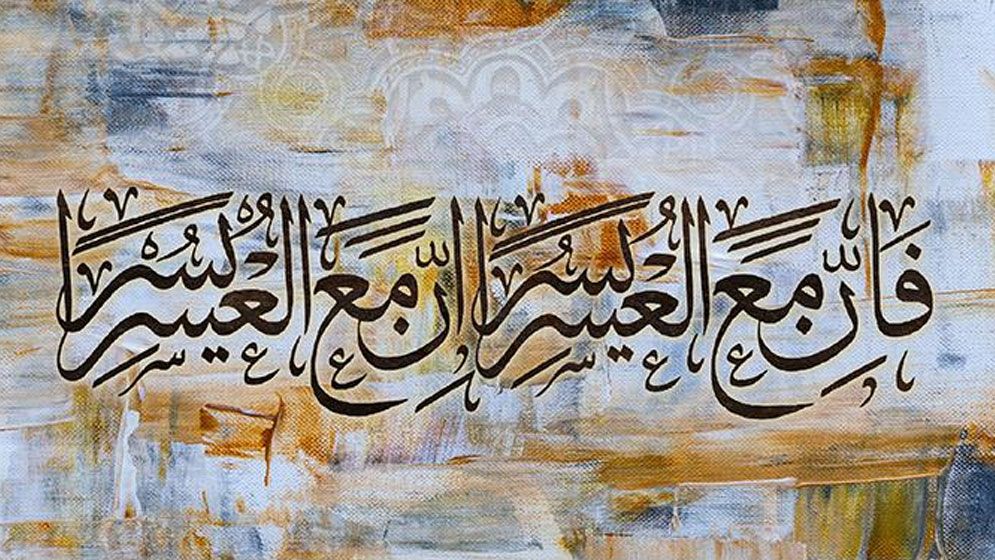 فَاِنَّ مَعَ الْعُسْرِ يُسْرًا اِنَّ مَعَ الْعُسْرِ يُسْرًا